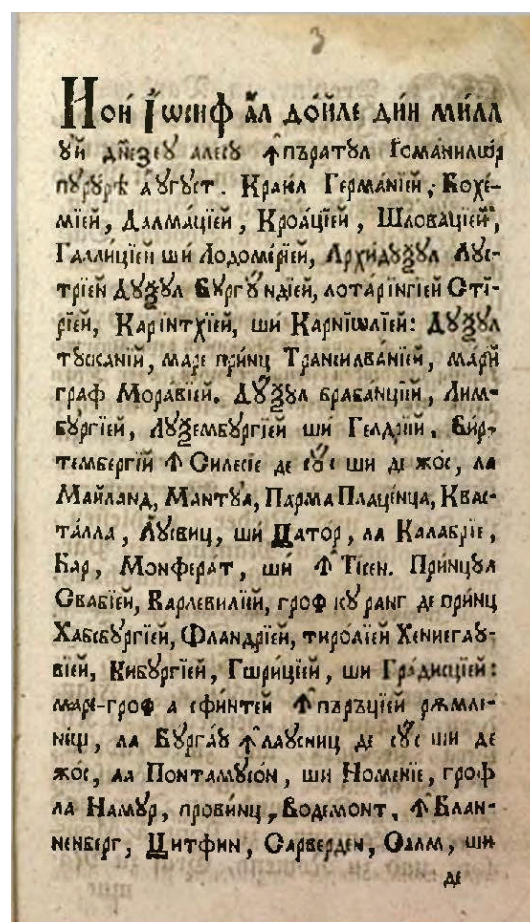 3
Нои́ І҆ѡсиф ал до́йле ди́н ми́ла
ꙋй дм҃незеꙋ алесꙋ ꙟпъратꙋл Романилѡр
пꙋрꙋрѣ а́ꙋгꙋст. Краил Герма́нїей, Бохе-
мїей, Далма́цїей, Кроа́цїей, Шлова́цїей,
Галли́цїей ши́ Лодоме́рїей, Архидꙋѯꙋл Аꙋс-
трїей Дꙋѯꙋл Бꙋргꙋ́ндїей, лотарі́нгїей Сті́-
рїей, Карінтхїей, ши́ Карнїѡлїей: Дꙋѯꙋл
тꙋска́нїй, маре при́нц Трансилва́нїей, ма́рй
граф Мора́вїей. Дꙋ́ѯꙋл браба́нцїй, Лим-
бꙋргїей, Лꙋѯембꙋргїей ши́ Гелдрїй, Бир-
тембергїй Ꙟ Силесїе де сꙋ́с ши де жос, ла
Майланд, Мантꙋа, Парма Плаценца, Квас-
та́лла, Аꙋсвиц, ши́ Цатор, ла Кала́брїе,
Бар, Монферат, ши́ Ꙟ Тісен. При́нцꙋл
Сва́бїей, Варлевилїей, гроф кꙋ ранг де при́нц
Хабсбꙋргїей, Фландрїей, тиролїей Хенигаꙋ-
вїей, Кибꙋргїей, Гѡри́цїей, ши Гради́сцїей:
маре-гроф а сфинтей Ꙟпъръцїей рѫмле-
нещ, ла Бꙋргаꙋ ꙟ лаꙋсниц де сꙋ́с ши де
жо́с, ла Понтамꙋсо́н, ши́ Номенїе, гроф
ла Намꙋр, прови́нц, Водемонт, Ꙟ Блан-
ненберг, Цитфин, Сарверден, Салм, ши
де